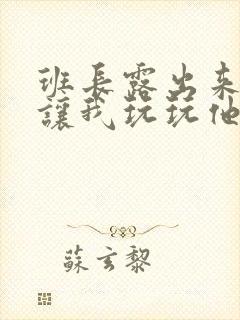 班長露出來
讓我玩玩他
蘇玄黎